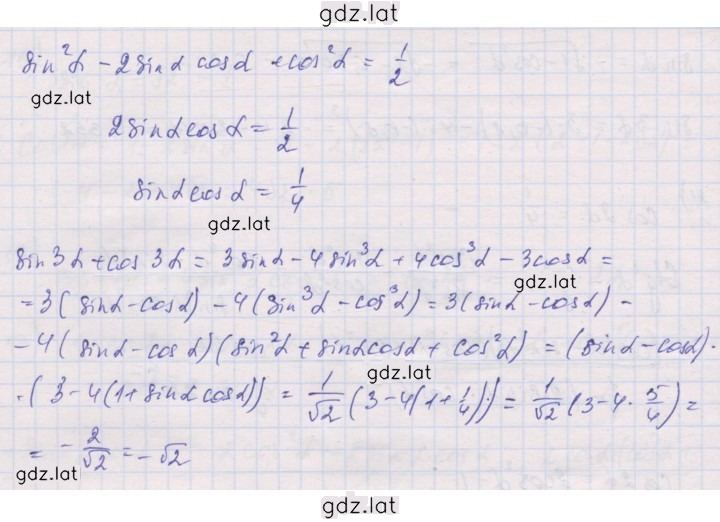 gdz.lat
sin²α - 2sinα cosα + cos²α = 1/2
gdz.lat
2sinαcosα = 1/2
sinαcosα = 1/4
gdz.lat
sin3α + cos3α = 3sinα - 4sin³α + 4cos³α - 3cosα =
gdz.lat
= 3(sinα - cosα) - 4(sin³α - cos³α) = 3(sinα - cosα) -
- 4(sinα - cosα)(sin²α + sinαcosα + cos²α) = (sinα - cosα)·
gdz.lat
·(3 - 4(1 + sinαcosα)) = 1/√2 (3 - 4(1 + 1/4)) = 1/√2 (3 - 4 · 5/4) =
= -2/√2 = -√2
gdz.lat
gdz.lat